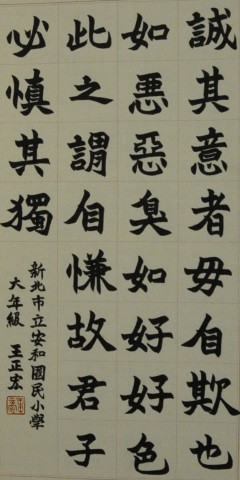 誠其意者毋自欺也
如悪惡臭如好好色
此之謂自慊故君子
必慎其獨
新北市立安和國民小學
六年級 王正宏